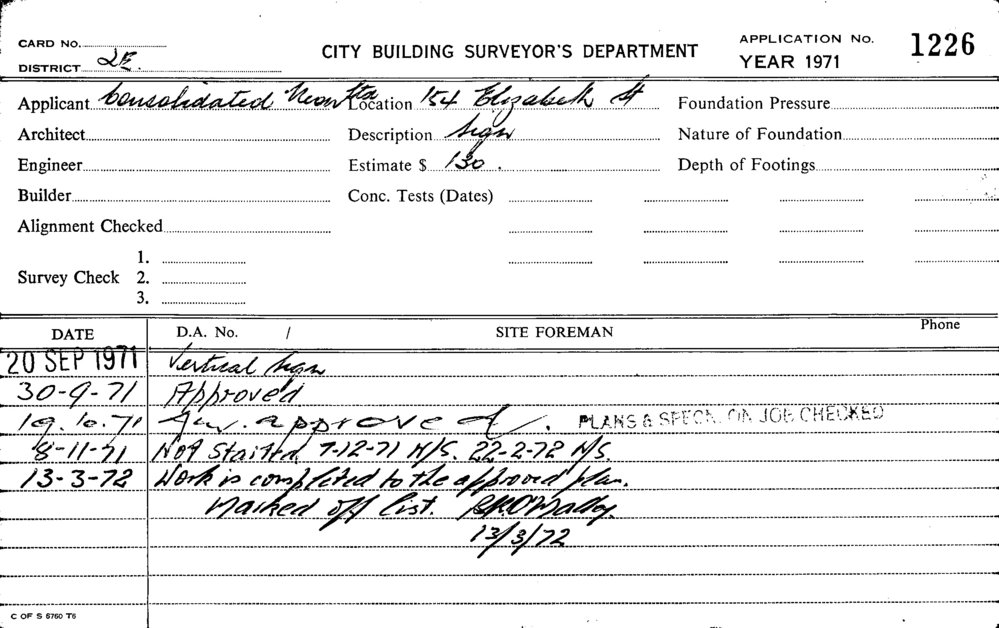 CARD No.
DISTRICT 2E.
CITY BUILDING SURVEYOR'S DEPARTMENT
APPLICATION No. 1226
YEAR 1971
Applicant Consolidated Neon Location 154 Elizabeth St Foundation Pressure
Architect Description Sign Nature of Foundation
Engineer Estimate $ 130. Depth of Footings
Builder Conc. Tests (Dates)
Alignment Checked
1.
Survey Check 2.
3.
DATE D.A. No. / SITE FOREMAN Phone
20 SEP 1971 Vertical Sign
30-9-71 Approved
19.10.71 approved. PLANS & SPECN. ON JOB CHECKED
8-11-71 Not Started. 7-12-71 N/S. 22-2-72 N/S.
13-3-72 Work is completed to the approved plan.
Marked off list.
13/3/72
C OF S 6760 T6